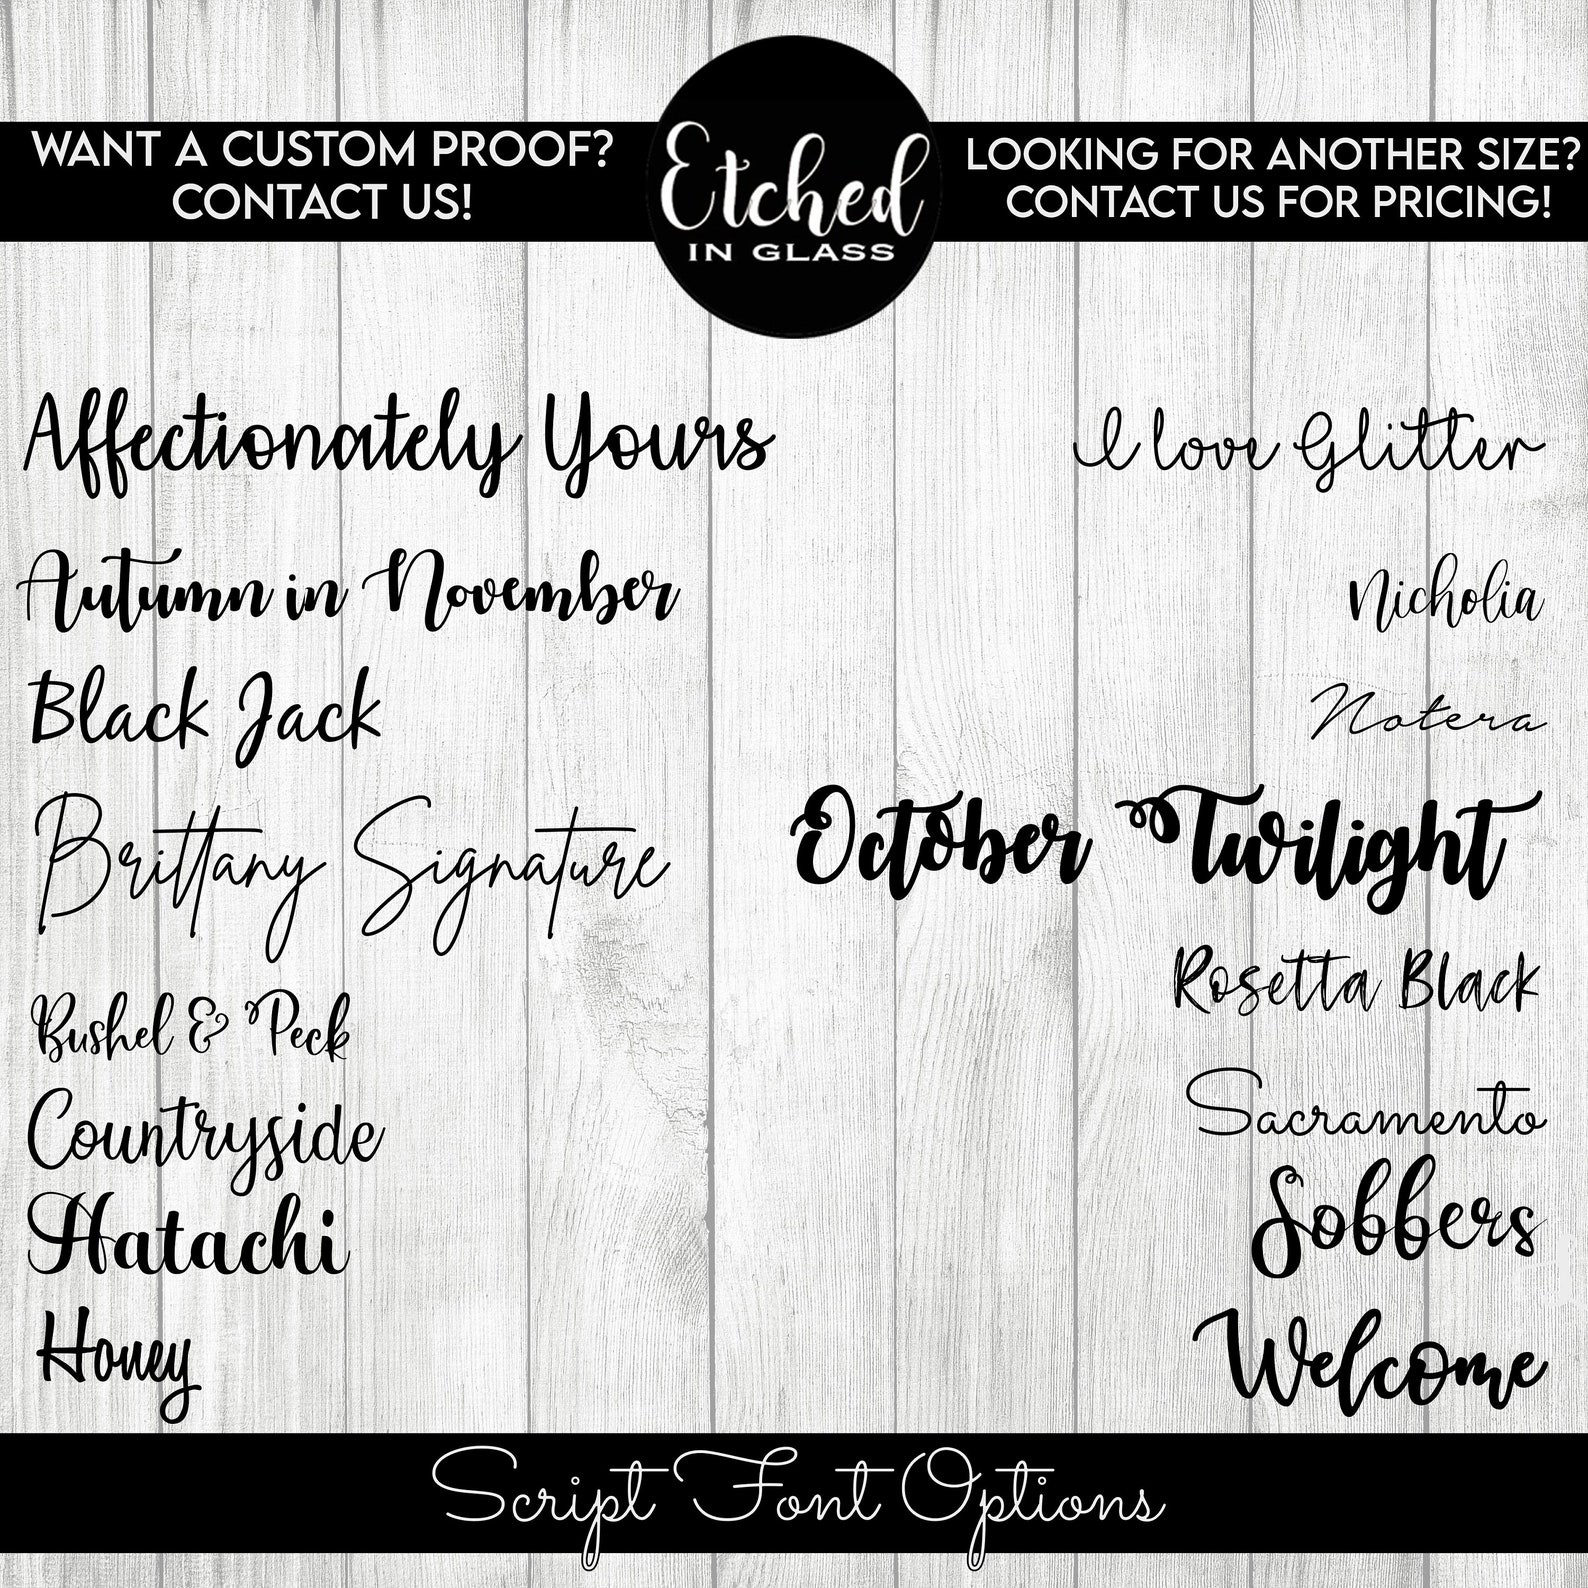 WANT A CUSTOM PROOF?
CONTACT US!
Etched
IN GLASS
LOOKING FOR ANOTHER SIZE?
CONTACT US FOR PRICING!
Affectionately Yours
Autumn in November
Black Jack
Brittany Signature
Bushel & Peck
Countryside
Hatachi
Honey
I love Glitter
Nicholia
Notera
October Twilight
Rosetta Black
Sacramento
Sobbers
Welcome
Script Font Options